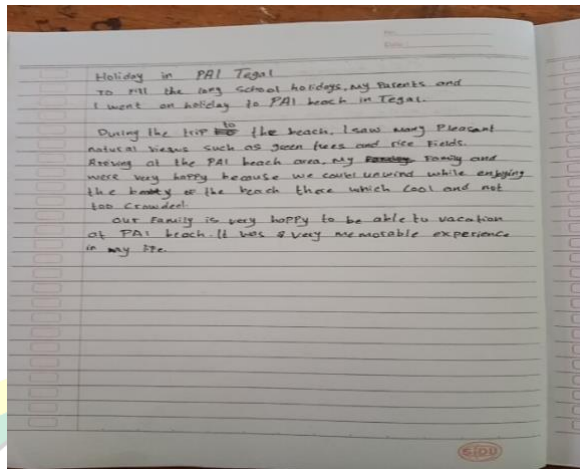 No :
Date :
Holiday in PAI Tegal
To Fill the long School holidays, My Parents and
I went on holiday to PAI beach in Tegal.
During the trip to the beach, I saw Many Pleasant
natural viewus such as green trees and rice Fields.
Arriving at the PAI beach area, My Family and
were very happy because we could unwind while enjoying
the beauty of the beach there which cool and not
too Crowded.
Our Family is very happy to be able to vacation
at PAI beach. It was a very memorable experience
in my life.
SIDU